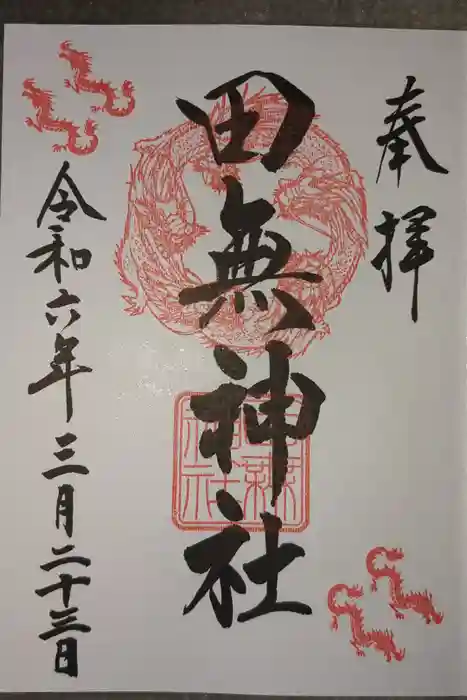 奉拝
田無神社
令和六年三月二十三日
田無神社